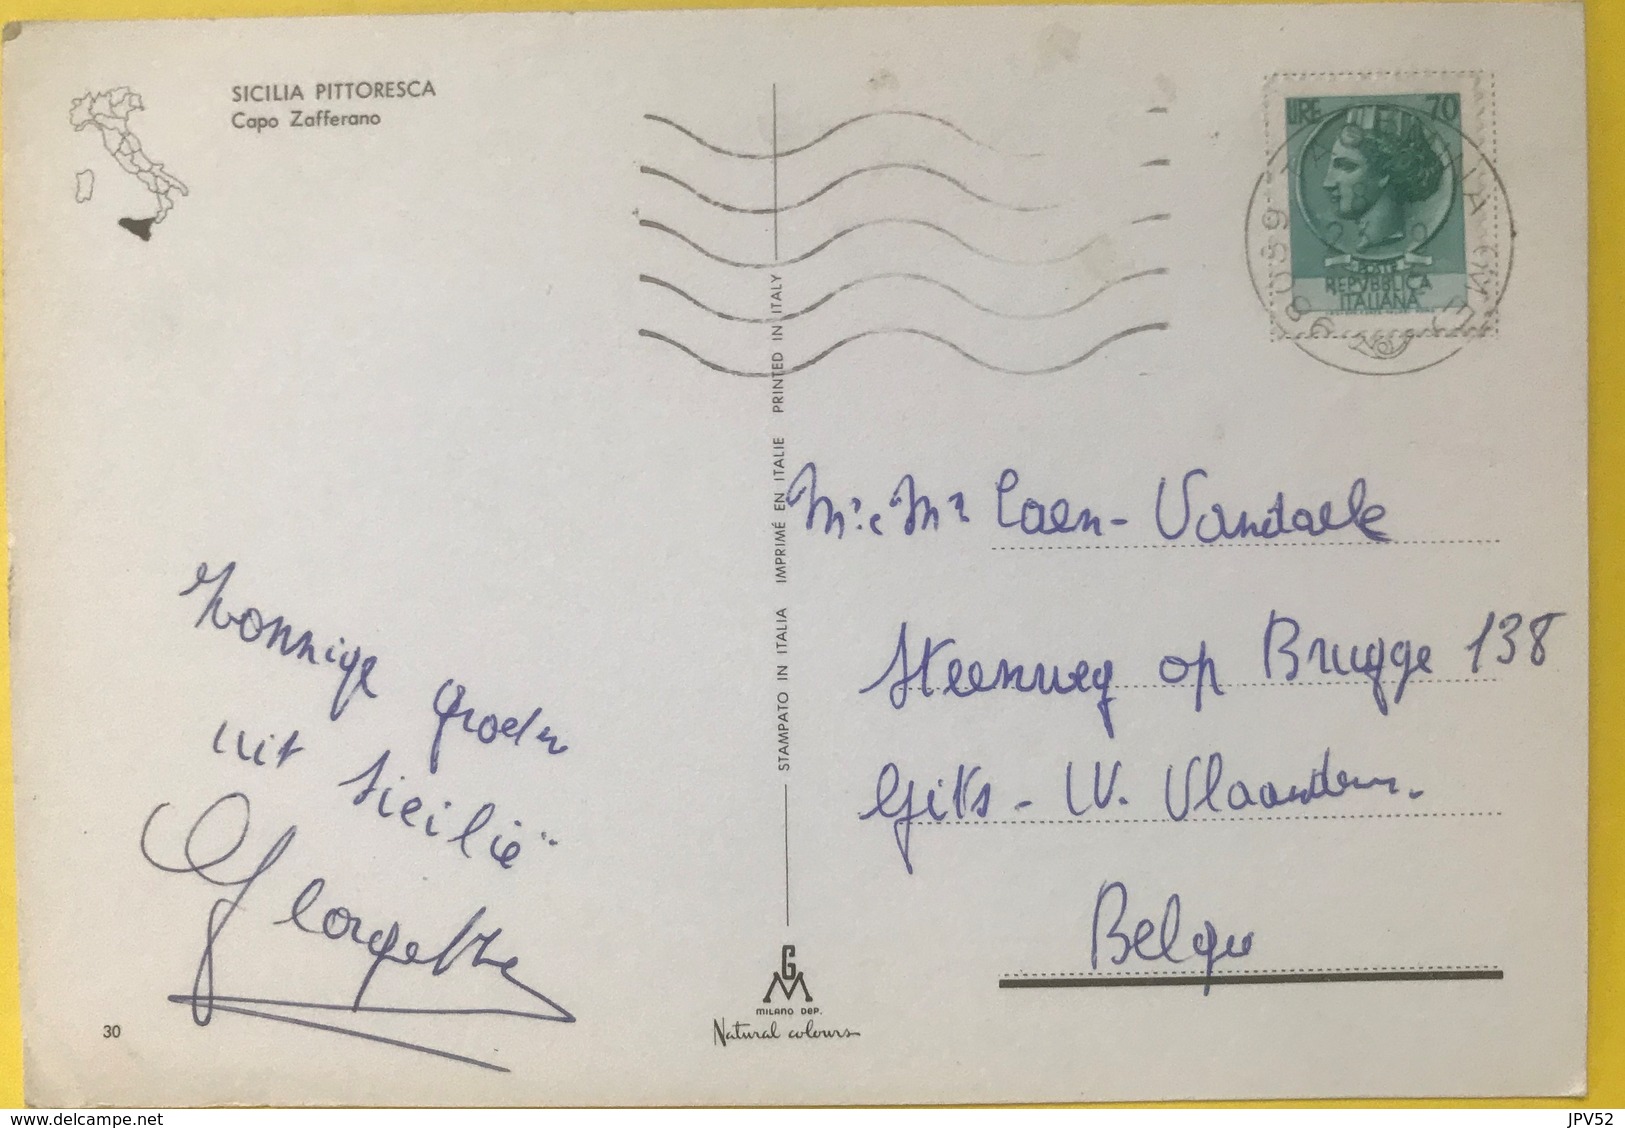 SICILIA PITTORESCA
Capo Zafferano
LIRE 70
POSTE
REPVBBLICA
ITALIANA
STAMPATO IN ITALIA IMPRIMÉ EN ITALIE PRINTED IN ITALY
Zonnige groeten
uit Sicilië
Georgette
Mr. Mr Caen-Vandaele
Steenweg op Brugge 138
Gits - W. Vlaanderen.
Belgie
30
GM
MILANO DEP.
Natural colours
www.delcampe.net
JPV52